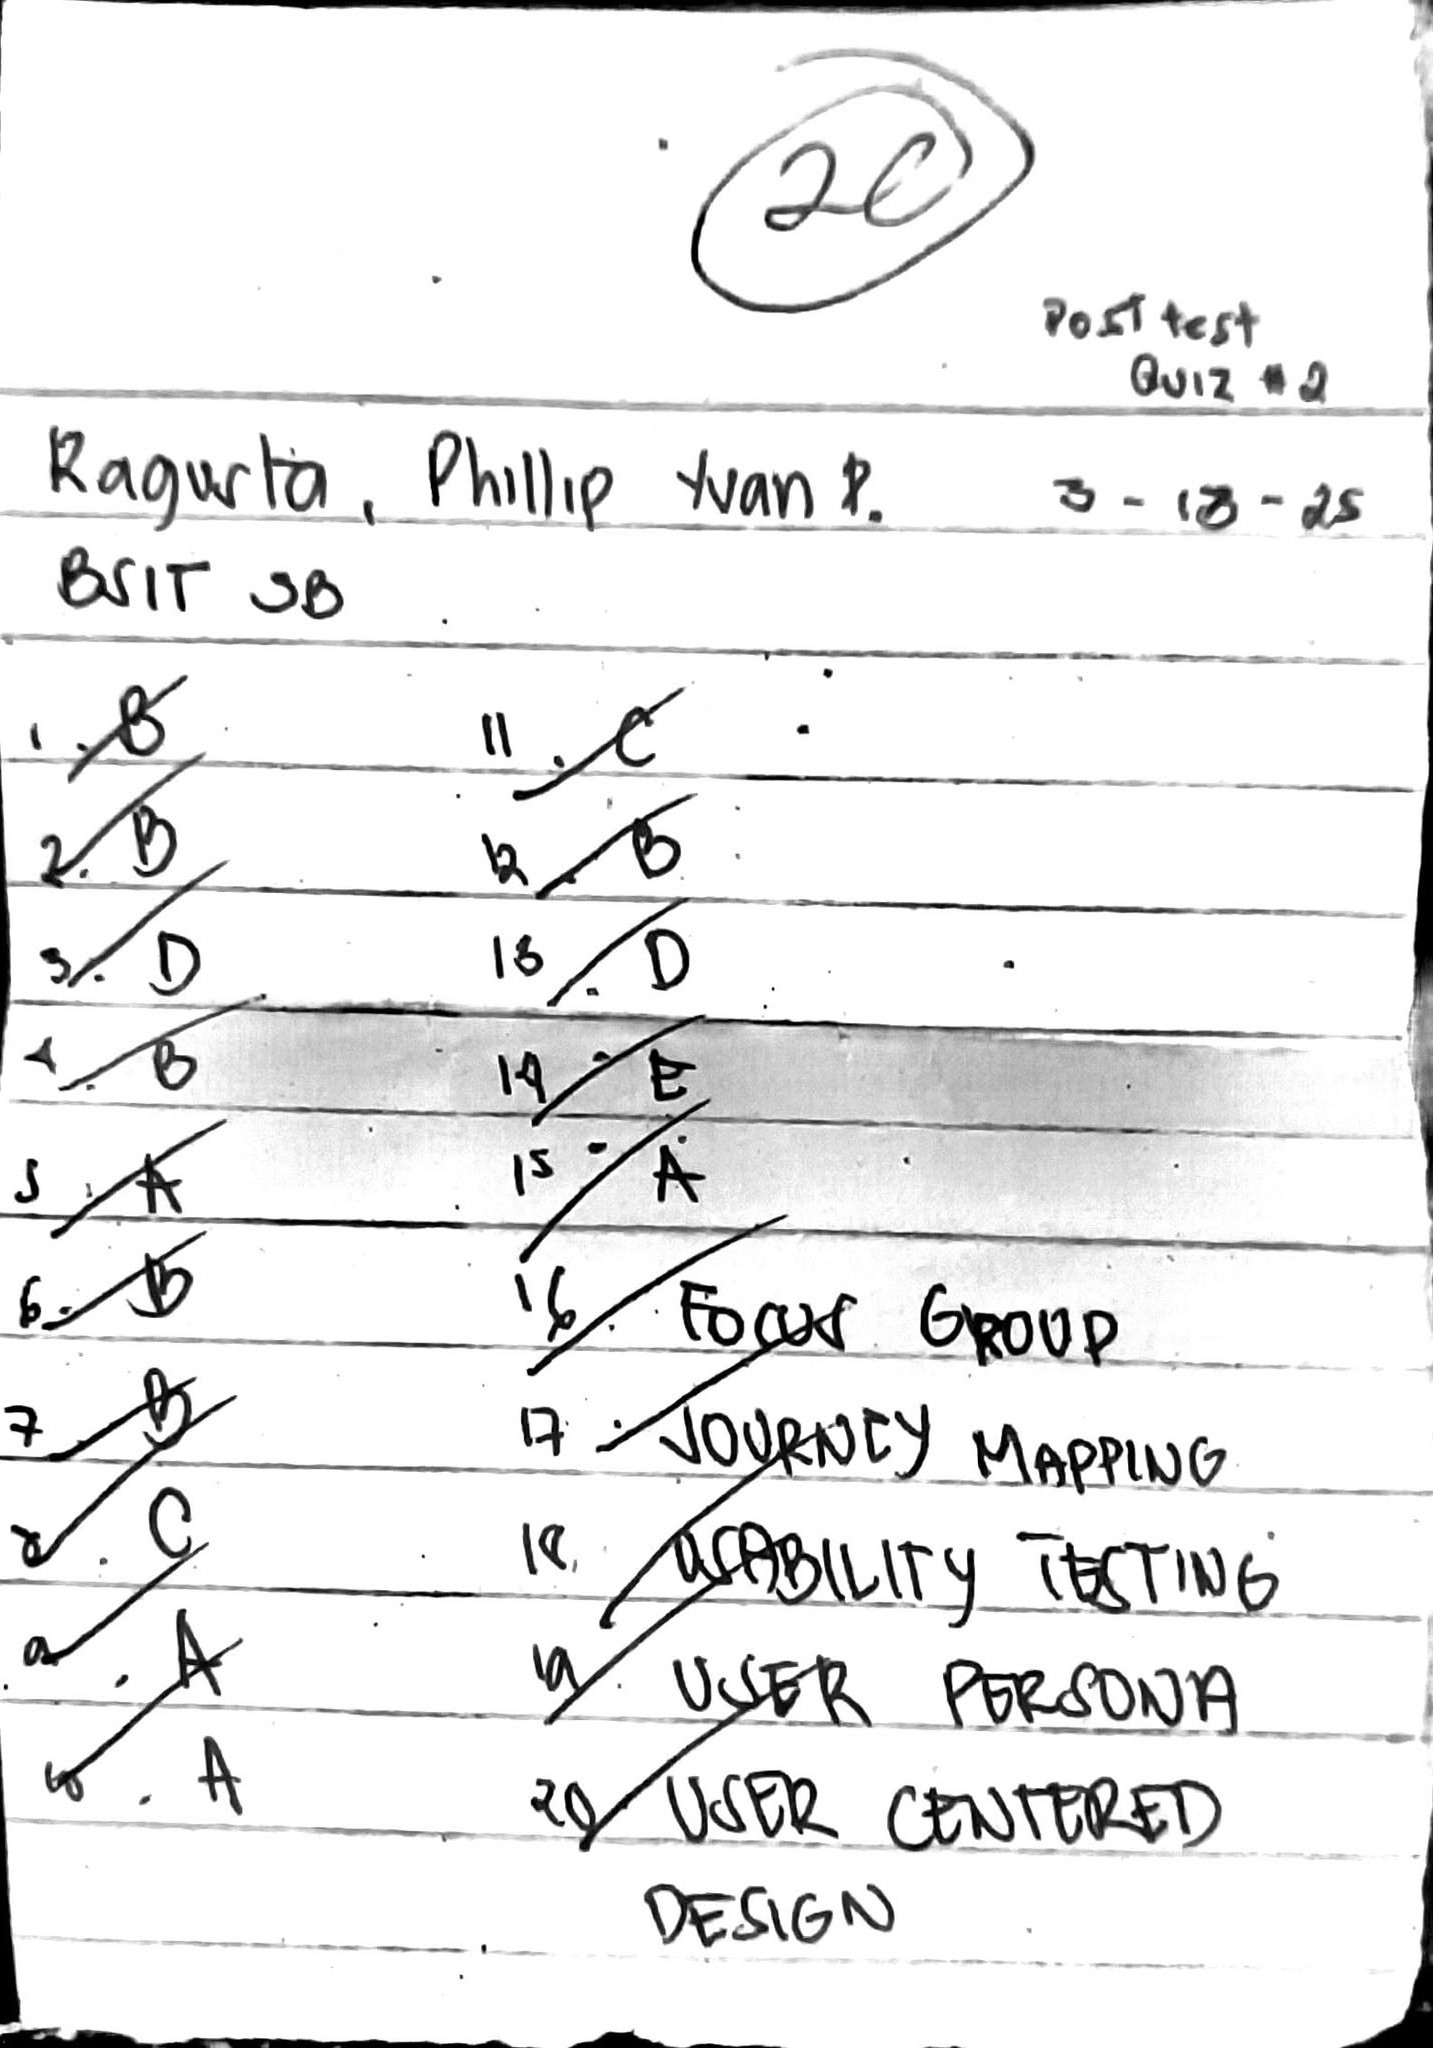 20
Post test
Quiz #2
Ragusta, Phillip Yvan P. 3-18-25
BSIT 3B
1. B
2. B
3. D
4. B
5. A
6. B
7. B
8. C
9. A
10. A
11. C
12. B
13. D
14. E
15. A
16. FOCUS GROUP
17. JOURNEY MAPPING
18. USABILITY TESTING
19. USER PERSONA
20. USER CENTERED
DESIGN